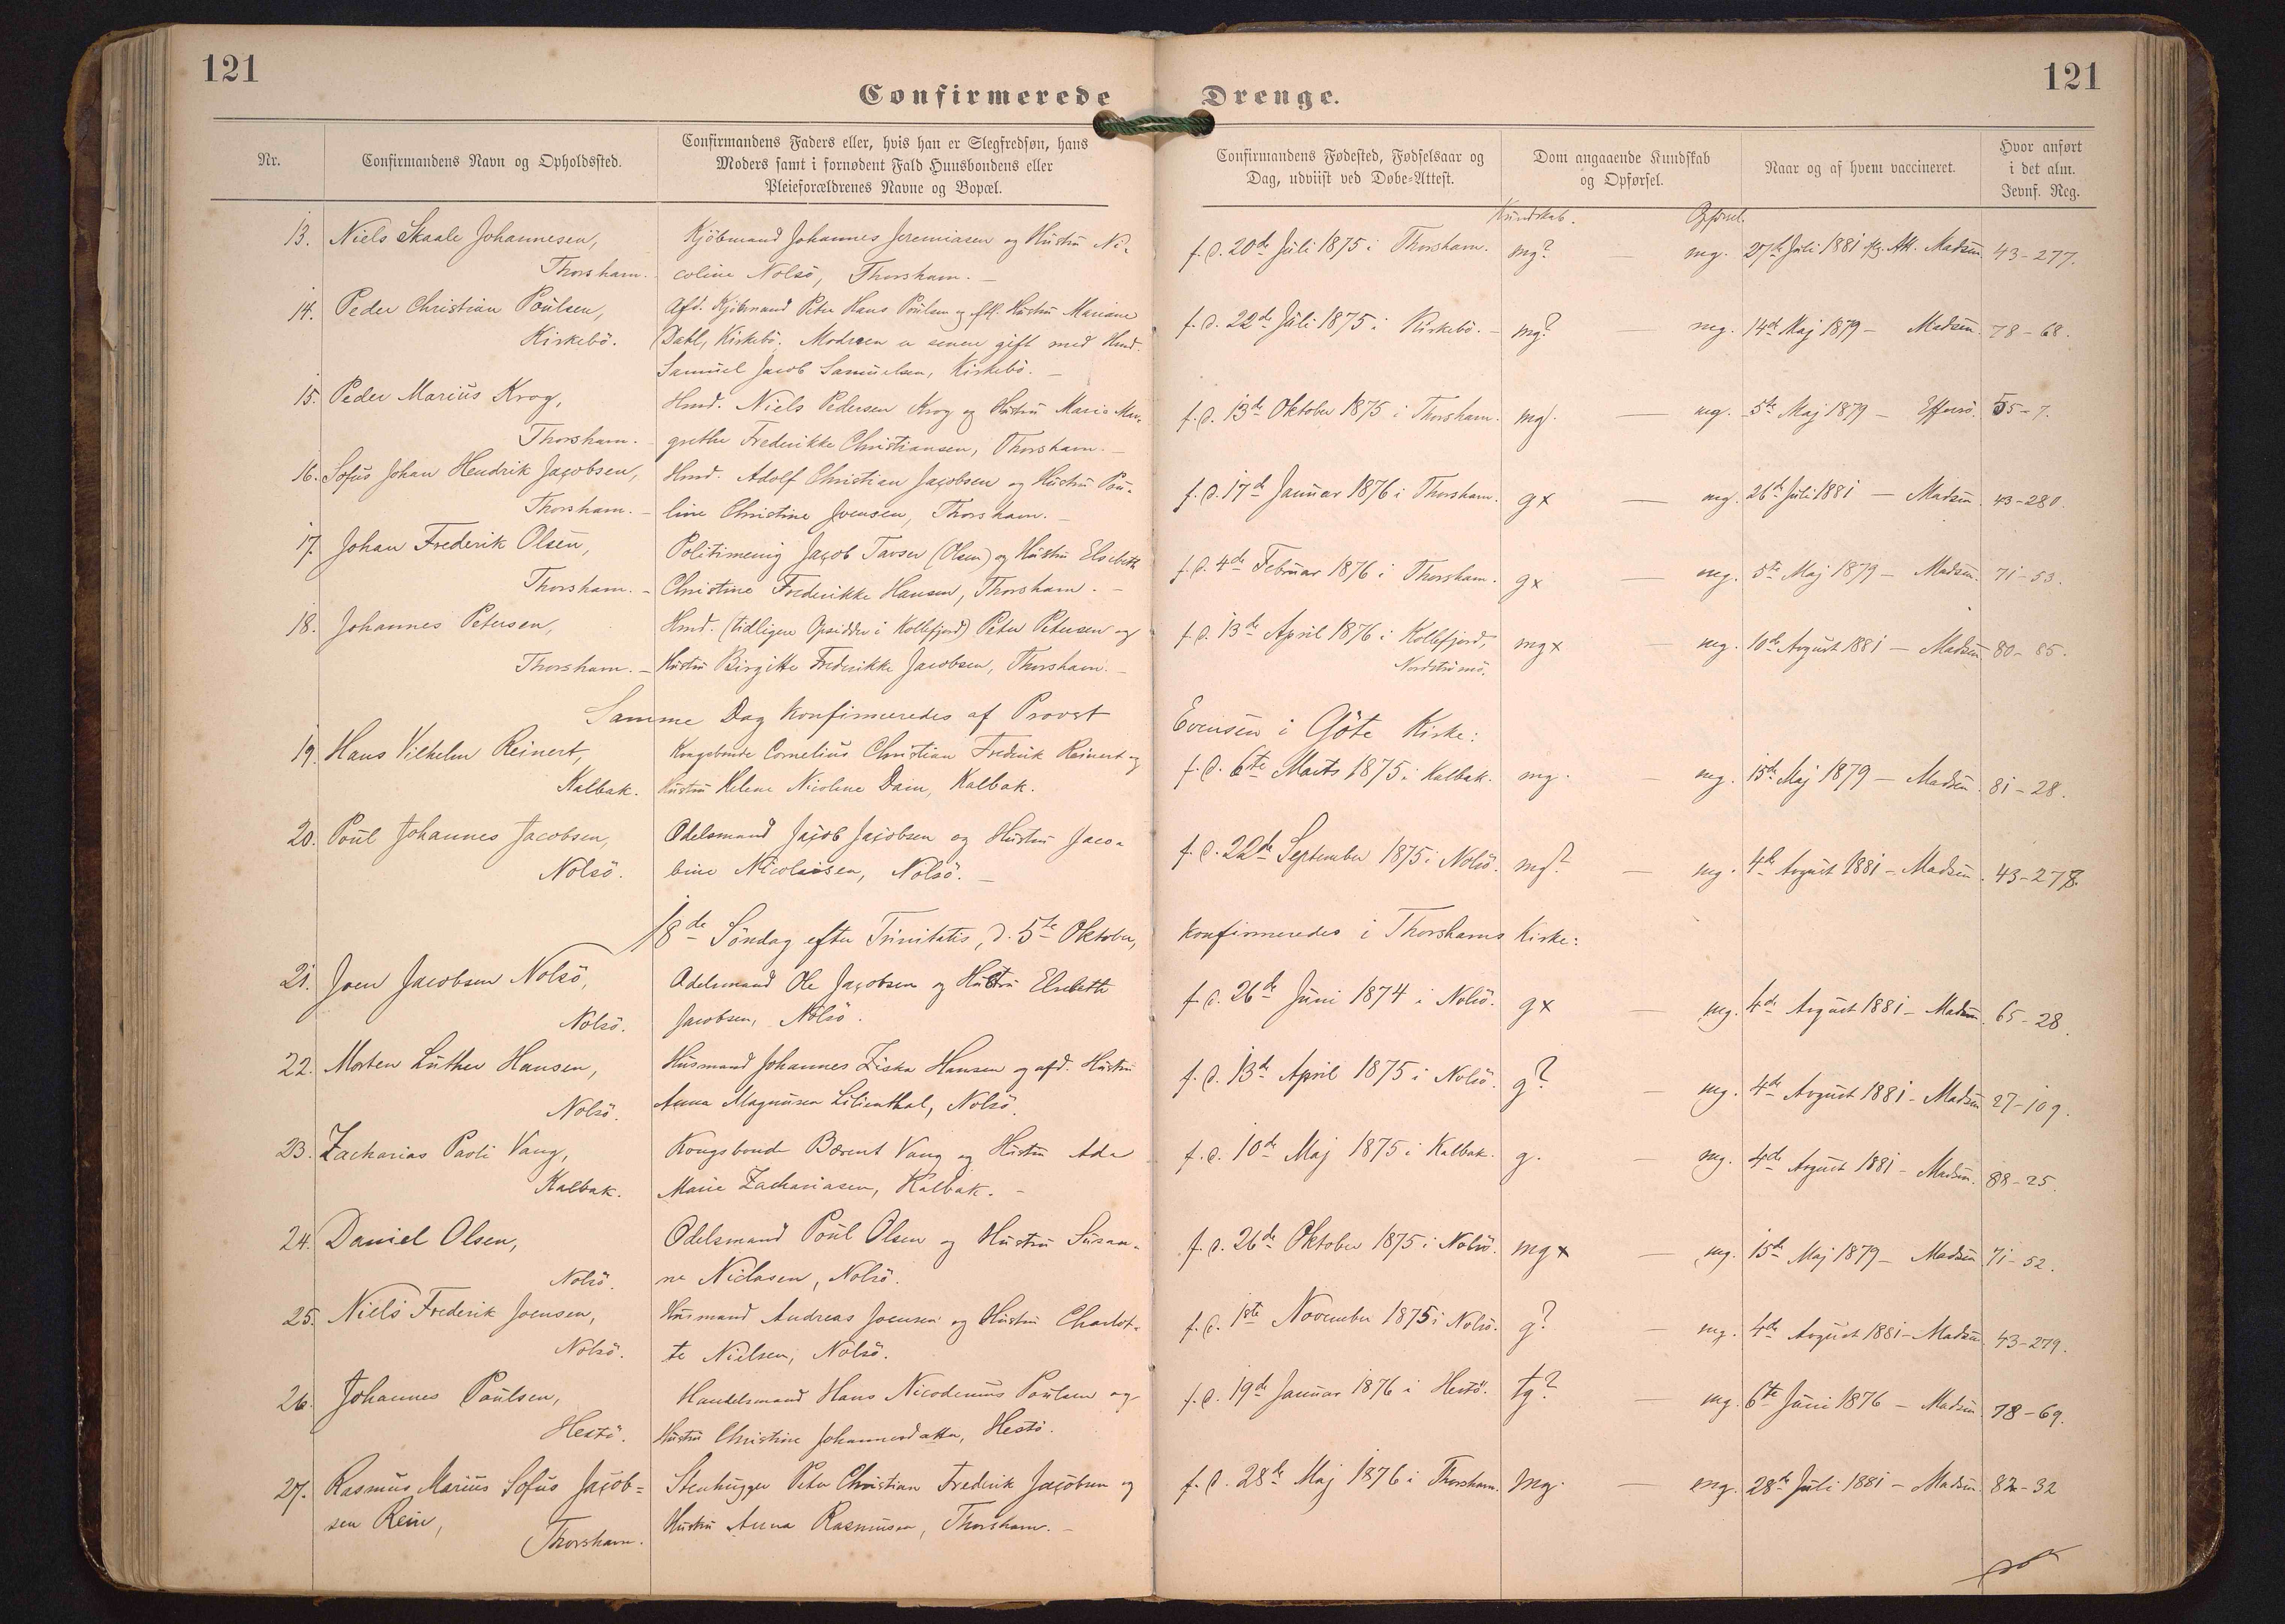 121
121
Confirmerede Drenge.
Nr.
Confirmandens Navn og Opholdssted.
Confirmandens Faders eller, hvis han er Slegfredsøn, hans
Moders samt i fornødent Fald Huusbondens eller
Pleieforældrenes Navne og Bopæl.
Confirmandens Fødested, Fødselsaar og
Dag, udviist ved Døbe-Attest.
Dom angaaende Kundskab
og Opførsel.
Naar og af hvem vaccineret.
Hvor anført
i det alm.
Jevnf. Reg.
Kundskab. Opførsel.
13. Niels Skaale Johannesen, Kjöbmand Johannes Jeremiasen og Hustru Ni- f. d. 20de Juli 1875 i Thorshavn. mg? — mg. 27de Juli 1881 Att. Madsen. 43-277.
Thorshavn. coline Nolsö, Thorshavn. —
14. Peder Christian Poulsen, Afd. Kjöbmand Peter Hans Poulsen og Hustru Mariane f. d. 22de Juli 1875 i Kirkebö. — mg? — mg. 14de Maj 1879 — Madsen. 78-68.
Kirkebö. Dahl, Kirkebö. Moderen er senere gift med Hmd.
Samuel Jacob Samuelsen, Kirkebö. —
15. Peder Marius Krog, Hmd. Niels Pedersen Krog og Hustru Marie Mar- f. d. 13de Oktober 1875 i Thorshavn. mg. — mg. 5te Maj 1879 — Effersö. 55-7.
Thorshavn. — grethe Frederikke Christiansen, Thorshavn. —
16. Sofus Johan Hendrik Jacobsen, Hmd. Adolf Christian Jacobsen og Hustru Pou- f. d. 17de Januar 1876 i Thorshavn. gx — mg. 26de Juli 1881 — Madsen 43-280.
Thorshavn. — line Christine Joensen, Thorshavn. —
17. Johan Frederik Olsen, Politimenig Jacob Tavsen (Olsen) og Hustru Elsebeth f. d. 4de Februar 1876 i Thorshavn. gx — mg. 5te Maj 1879 — Madsen. 71-53.
Thorshavn. — Christine Frederikke Hansen, Thorshavn. —
18. Johannes Petersen, Hmd. (tidligere Opsidder i Kollefjord) Peter Petersen og f. d. 13de April 1876 i Kollefjord, mgx — mg. 10de August 1881 — Madsen 80-85.
Thorshavn. — Hustru Birgitte Frederikke Jacobsen, Thorshavn. — Nordströmö.
Samme Dag konfirmeredes af Provst Evensen i Göte Kirke:
19. Hans Vilhelm Reinert, Kongsbonde Cornelius Christian Frederik Reinert og f. d. 6te Marts 1875 i Kalbak. mg. — mg. 15de Maj 1879 — Madsen. 81-28.
Kalbak. Hustru Helene Nicoline Dam, Kalbak.
20. Poul Johannes Jacobsen, Odelsmand Jacob Jacobsen og Hustru Jaco- f. d. 22de September 1875 i Nolsö. mg? — mg. 4de August 1881 — Madsen. 43-278.
Nolsö. bine Nicolaisen, Nolsö. —
18de Söndag efter Trinitatis, d. 5te Oktober, konfirmeredes i Thorshavns Kirke:
21. Joen Jacobsen Nolsö, Odelsmand Ole Jacobsen og Hustru Elsebeth f. d. 26de Juni 1874 i Nolsö. gx — mg. 4de August 1881 — Madsen. 65-28.
Nolsö. Jacobsen, Nolsö.
22. Morten Luther Hansen, Husmand Johannes Ziska Hansen og afd. Hustru f. d. 13de April 1875 i Nolsö. g? — mg. 4de August 1881 — Madsen 27-109.
Nolsö. Anna Magnusen Lilienthal, Nolsö.
23. Zacharias Paoli Vang, Kongsbonde Bærent Vang og Hustru Ada f. d. 10de Maj 1875 i Kalbak. g. — mg. 4de August 1881 — Madsen. 88-25.
Kalbak. Marie Zachariasen, Kalbak. —
24. Daniel Olsen, Odelsmand Poul Olsen og Hustru Susan- f. d. 26de Oktober 1875 i Nolsö. mgx — mg. 15de Maj 1879 — Madsen 71-52.
Nolsö. ne Niclasen, Nolsö.
25. Niels Frederik Joensen, Husmand Andreas Joensen og Hustru Charlot- f. d. 1ste November 1875 i Nolsö. g? — mg. 4de August 1881 — Madsen. 43-279.
Nolsö. te Nielsen, Nolsö.
26. Johannes Poulsen, Handelsmand Hans Nicodemus Poulsen og f. d. 19de Januar 1876 i Hestö. tg? — mg. 6te Juni 1876 — Madsen. 78-69.
Hestö. Hustru Christine Johannesdatter, Hestö.
27. Rasmus Marius Sofus Jacob- Stenhugger Peter Christian Frederik Jacobsen og f. d. 28de Maj 1876 i Thorshavn. mg. — mg. 28de Juli 1881 — Madsen. 82-32
sen Rein, Hustru Anna Rasmusen, Thorshavn. —
Thorshavn.